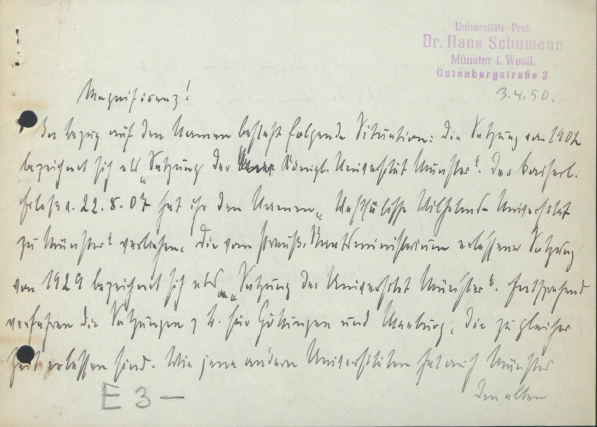 Universitäts-Prof.
Dr. Hans Schumann
Münster i. Westf.
Gutenbergstraße 2
3.4.50.
Magnifizenz!
In bezug auf den Namen besteht folgende Situation: die Satzung von 1902
bezeichnet sich als „Satzung der Königl. Universität Münster“. Der Kaiserl.
Erlass v. 22.8.07 hat ihr den Namen „Westfälische Wilhelms-Universität
zu Münster“ verliehen. Die vom Preuß. Staatsministerium erlassene Satzung
von 1929 bezeichnet sich als „Satzung der Universität Münster“. Entsprechend
verfahren die Satzungen z. B. für Göttingen und Marburg, die zu gleicher
Zeit erlassen sind. Wie jene andern Universitäten hat auch Münster
den alten
E 3 –